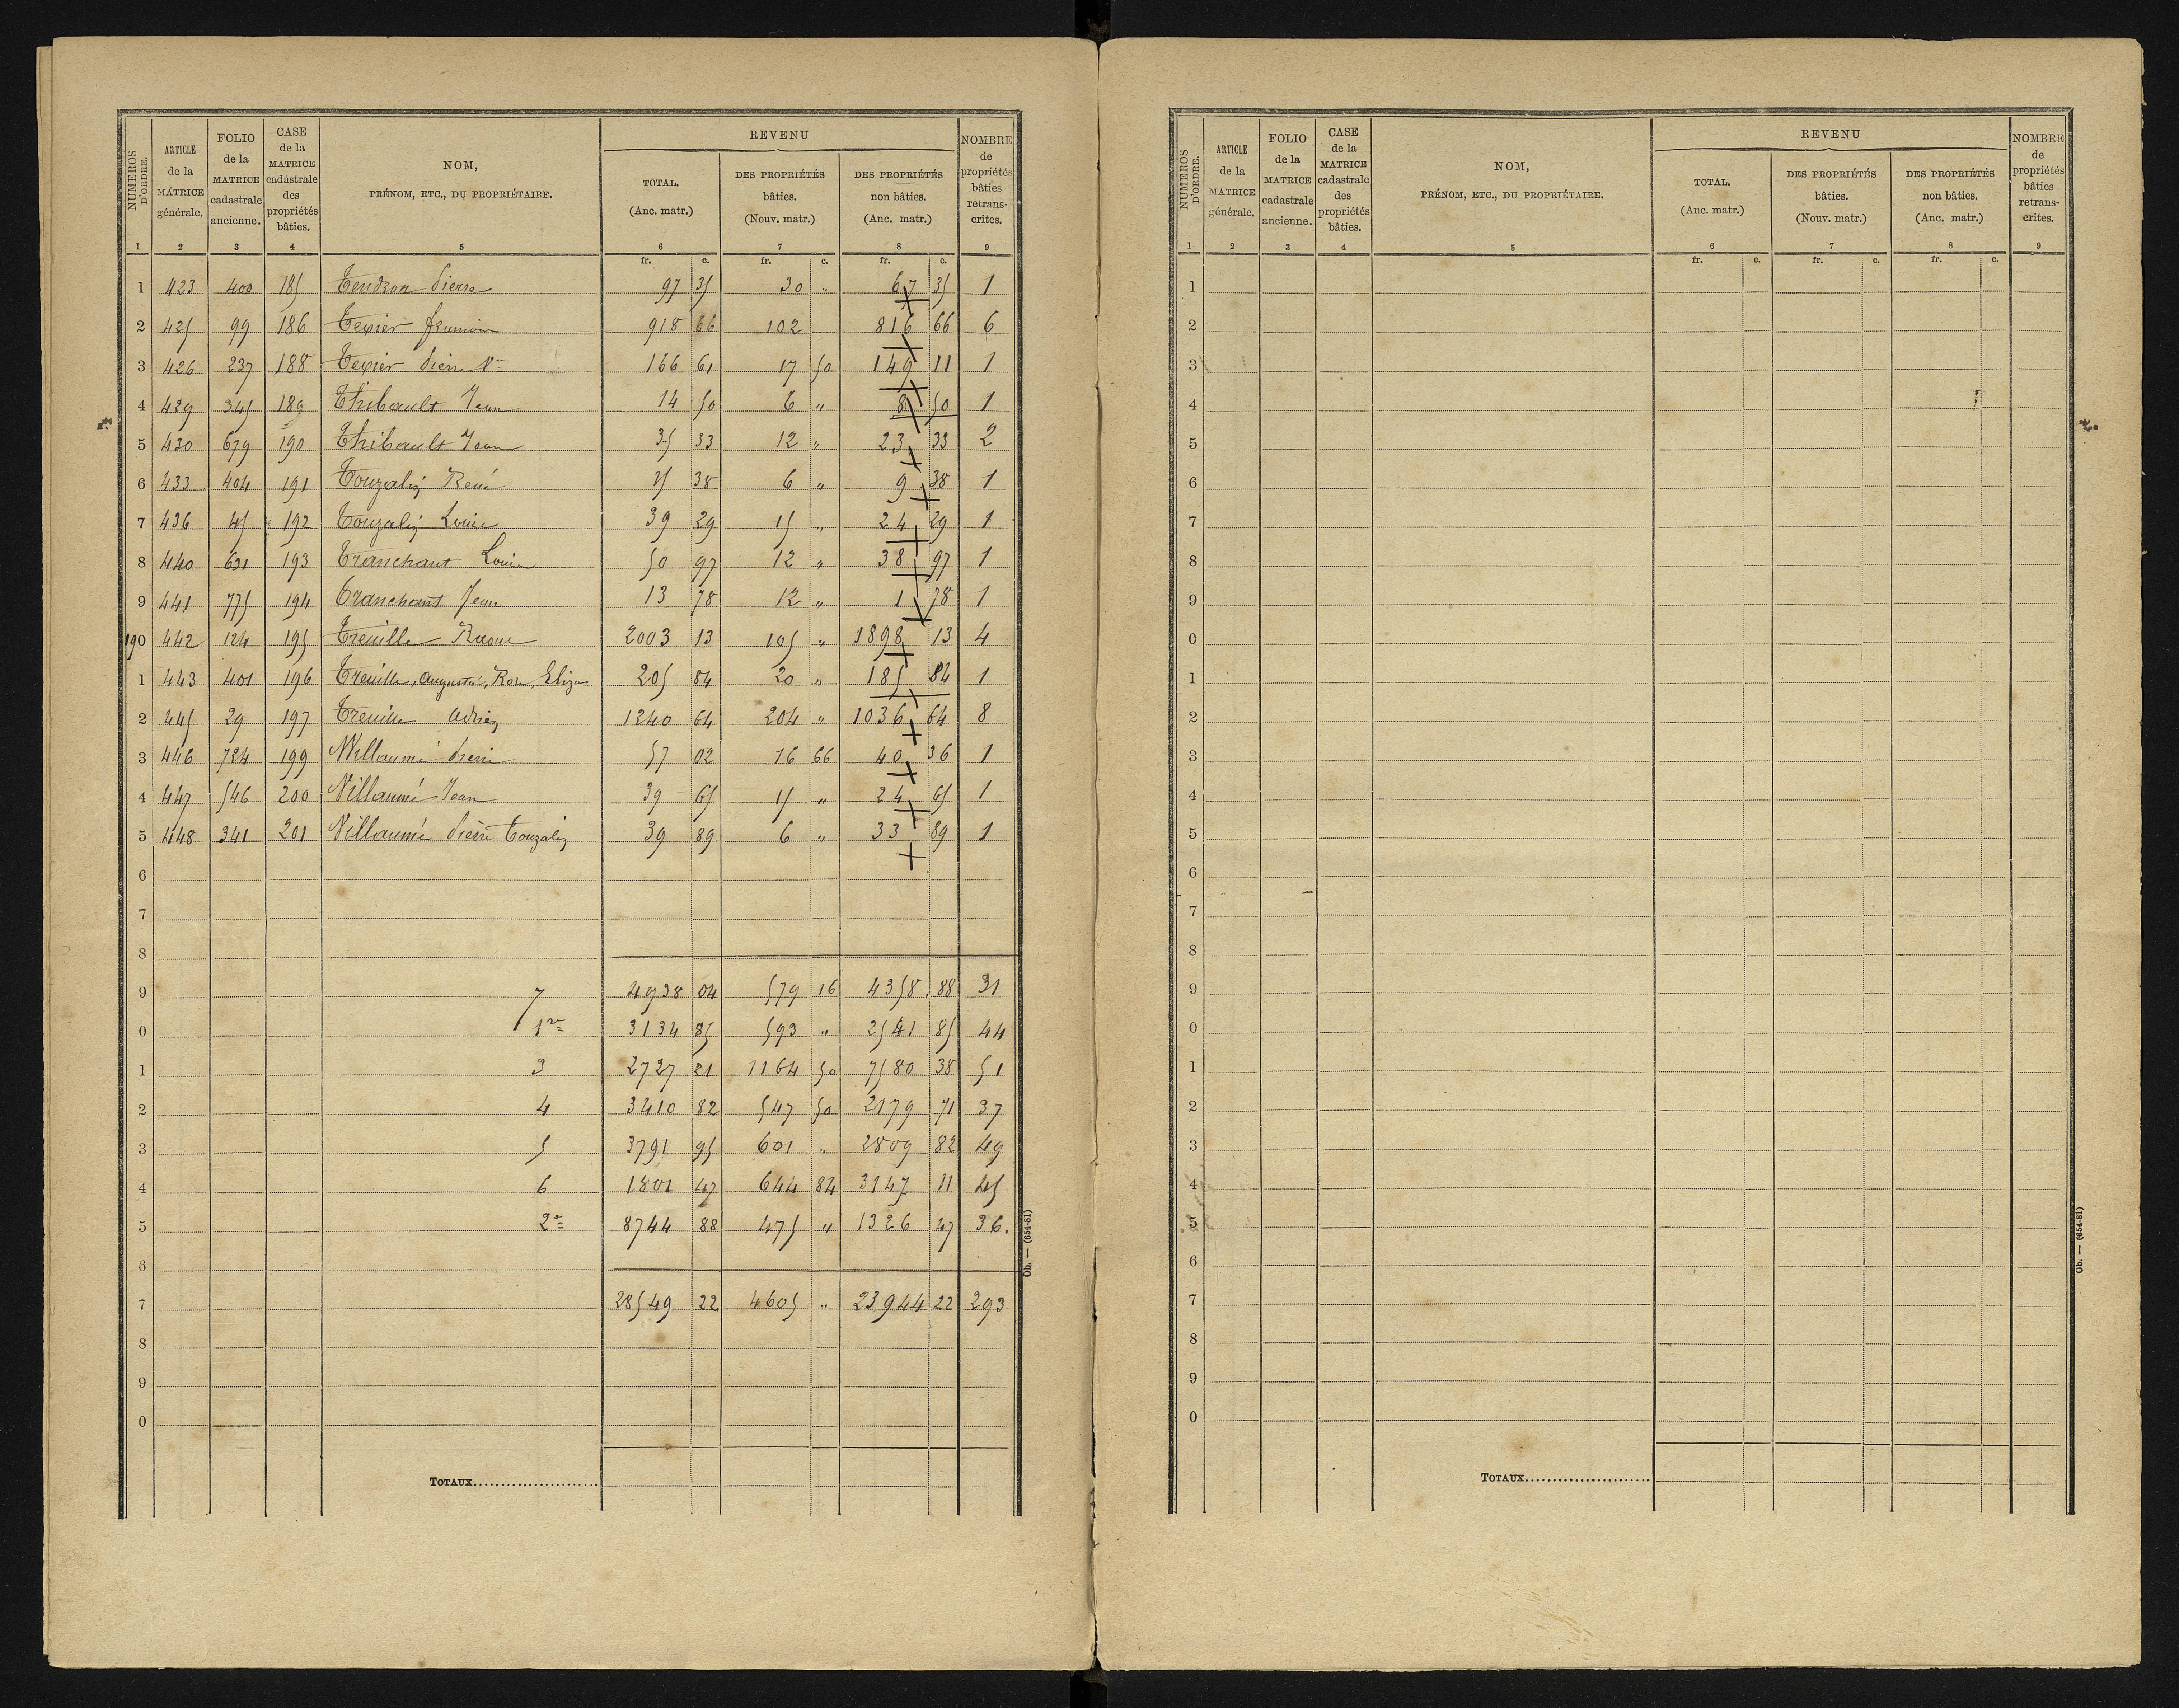 NUMÉROS D'ORDRE. | ARTICLE de la MATRICE générale. | FOLIO de la MATRICE cadastrale ancienne. | CASE de la MATRICE cadastrale des propriétés bâties. | NOM, PRÉNOM, ETC., DU PROPRIÉTAIRE. | REVENU TOTAL. (Anc. matr.) | DES PROPRIÉTÉS bâties. (Nouv. matr.) | DES PROPRIÉTÉS non bâties. (Anc. matr.) | NOMBRE de propriétés bâties retranscrites.
1 2 3 4 5 6 7 8 9
fr. c. fr. c. fr. c.
1 423 400 185 Tendron Pierre 97 35 30 " 67 35 1
2 425 99 186 Texier 918 66 102 816 66 6
3 426 237 188 Texier Pierre Ve 166 61 17 50 149 11 1
4 429 345 189 Thibault Jean 14 50 6 " 8 50 1
5 430 679 190 Thibault Jean 35 33 12 " 23 33 2
6 433 404 191 Touzalin René 15 38 6 " 9 38 1
7 436 45 192 Touzalin Louis 39 29 15 " 24 29 1
8 440 631 193 Tranchant Louis 50 97 12 " 38 97 1
9 441 775 194 Tranchant Jean 13 78 12 " 1 78 1
190 442 124 195 Treuille Raoul 2003 13 105 " 1898 13 4
1 443 401 196 Treuille, Augustin, Rose, Eliza 205 84 20 " 185 84 1
2 445 29 197 Treuille Adrien 1240 64 204 " 1036 64 8
3 446 724 199 Villaumé Pierre 57 02 16 66 40 36 1
4 447 546 200 Villaumé Jean 39 65 15 " 24 65 1
5 448 341 201 Villaumé Pierre Touzalin 39 89 6 " 33 89 1
6
7
8
9 7 4938 04 579 16 4358 88 31
0 1re 3134 85 593 " 2541 85 44
1 3 2727 21 1164 50 7580 38 51
2 4 3410 82 547 50 2179 71 37
3 5 3791 95 601 " 2809 82 49
4 6 1801 47 644 84 3147 11 45
5 2e 8744 88 475 " 1326 47 36.
6
7 28549 22 4605 " 23944 22 293
8
9
0
TOTAUX
Ob. — (654-81)
NUMÉROS D'ORDRE. | ARTICLE de la MATRICE générale. | FOLIO de la MATRICE cadastrale ancienne. | CASE de la MATRICE cadastrale des propriétés bâties. | NOM, PRÉNOM, ETC., DU PROPRIÉTAIRE. | REVENU TOTAL. (Anc. matr.) | DES PROPRIÉTÉS bâties. (Nouv. matr.) | DES PROPRIÉTÉS non bâties. (Anc. matr.) | NOMBRE de propriétés bâties retranscrites.
1 2 3 4 5 6 7 8 9
fr. c. fr. c. fr. c.
1
2
3
4
5
6
7
8
9
0
1
2
3
4
5
6
7
8
9
0
1
2
3
4
5
6
7
8
9
0
TOTAUX
Ob. — (654-81)